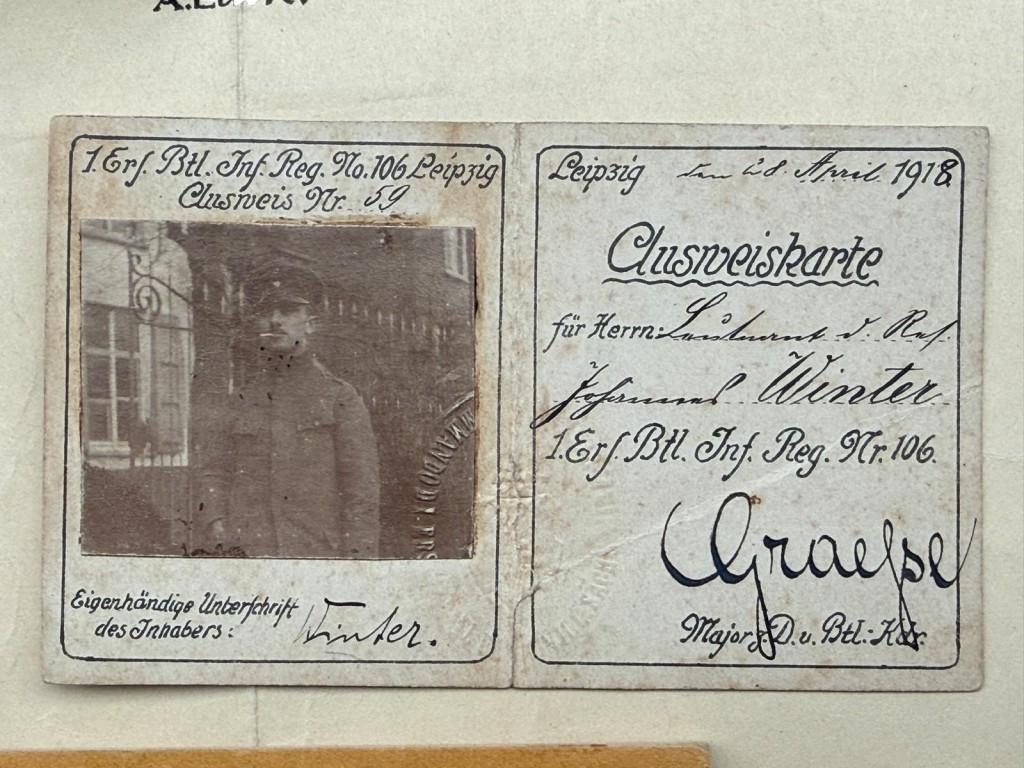 1. Ers. Btl. Inf. Reg. No. 106 Leipzig
Ausweis Nr. 59
KOMMANDO I. ERS
Eigenhändige Unterschrift
des Inhabers: Winter.
Leipzig den 28. April 1918.
Ausweiskarte
für Herrn: Leutnant d. Res.
Johannes Winter
1. Ers. Btl. Inf. Reg. Nr. 106.
Graesse
Major z. D. u. Btl.-Kdr.